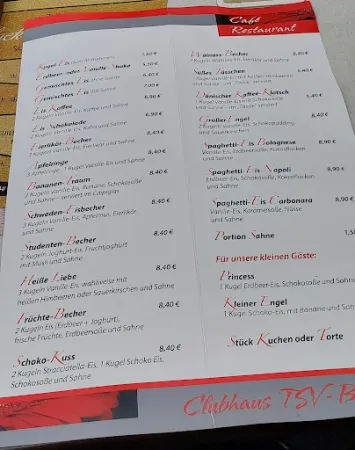 Café
Restaurant
Kugel Eis
Erdbeer- oder Vanille-Shake
Gemischtes Eis ohne Sahne
Gemischtes Eis mit Sahne
Eis Kaffee
2 Kugeln Vanille-Eis, Kaffee und Sahne
Eis Schokolade
2 Kugeln Vanille-Eis, Kakao und Sahne
Eierlikör-Becher
2 Kugeln Vanille-Eis, Eierlikör und Sahne
Apfelringe
3 Apfelringe, 1 Kugel Vanille-Eis und Sahne
Bananen-Traum 8,40 €
2 Kugeln Vanille-Eis, Banane, Schokosoße
und Sahne
Schweden-Eisbecher 8,40 €
3 Kugeln Vanille-Eis, Apfelmus, Eierlikör
und Sahne
Studenten-Becher 8,40 €
2 Kugeln Joghurt-Eis, Fruchtjoghurt
mit Müsli und Sahne
Heiße Liebe 8,40 €
3 Kugeln Vanille-Eis, wahlweise mit
heißen Himbeeren oder Sauerkirschen und Sahne
Früchte-Becher 8,40 €
2 Kugeln Eis (Erdbeer + Joghurt),
frische Früchte, Erdbeersoße und Sahne
Schoko-Kuss 8,40 €
2 Kugeln Stracciatella-Eis, 1 Kugel Schoko Eis,
Schokosoße und Sahne
8,40 €
Süßes Täuschen 8,40 €
Dänischer Kaffee-Klatsch 8,40 €
Großer Engel 8,40 €
2 Kugeln Vanille-Eis, Schokopudding
und Sauerkirschen
Spaghetti-Eis Bolognese 8,40 €
Vanille-Eis, Erdbeersoße, Kokosflocken
und Sahne
Spaghetti-Eis Napoli 8,40 €
Erdbeer-Eis, Schokosoße, Kokosflocken
und Sahne
Spaghetti-Eis Carbonara 8,40 €
Vanille-Eis, Karamelsoße, Nüsse
und Sahne
Portion Sahne 1,5
Für unsere kleinen Gäste:
Princess
1 Kugel Erdbeer-Eis, Schokosoße und Sahne
Kleiner Engel
1 Kugel Schoko-Eis, mit Banane und Sahne
Stück Kuchen oder Torte
Clubhaus TSV-B